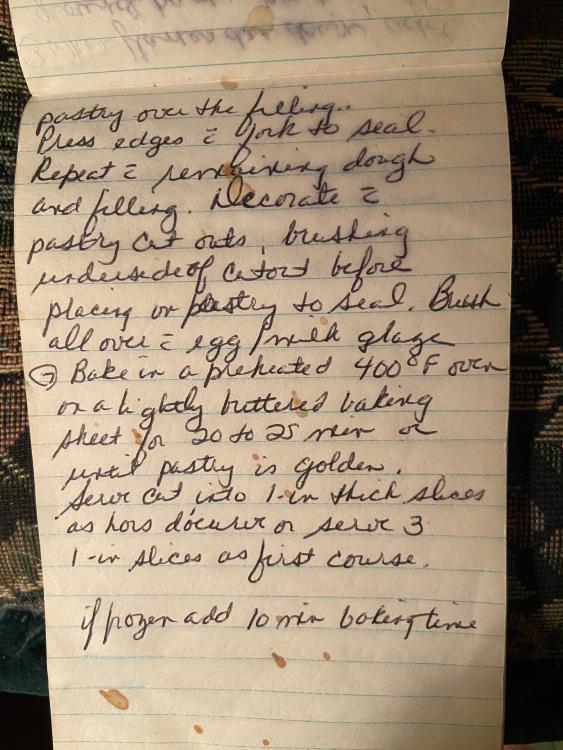 pastry over the filling..
Press edges = fork to seal.
Repeat = remaining dough
and filling. Decorate =
pastry cut outs, brushing
underside of cutout before
placing on pastry to seal. Brush
all over = egg/milk glaze
⑦ Bake in a preheated 400°F oven
on a lightly buttered baking
sheet for 20 to 25 min or
until pastry is golden.
Serve cut into 1-in thick slices
as hors d'ouevr or serve 3
1-in slices as first course.
if frozen add 10 min baking time